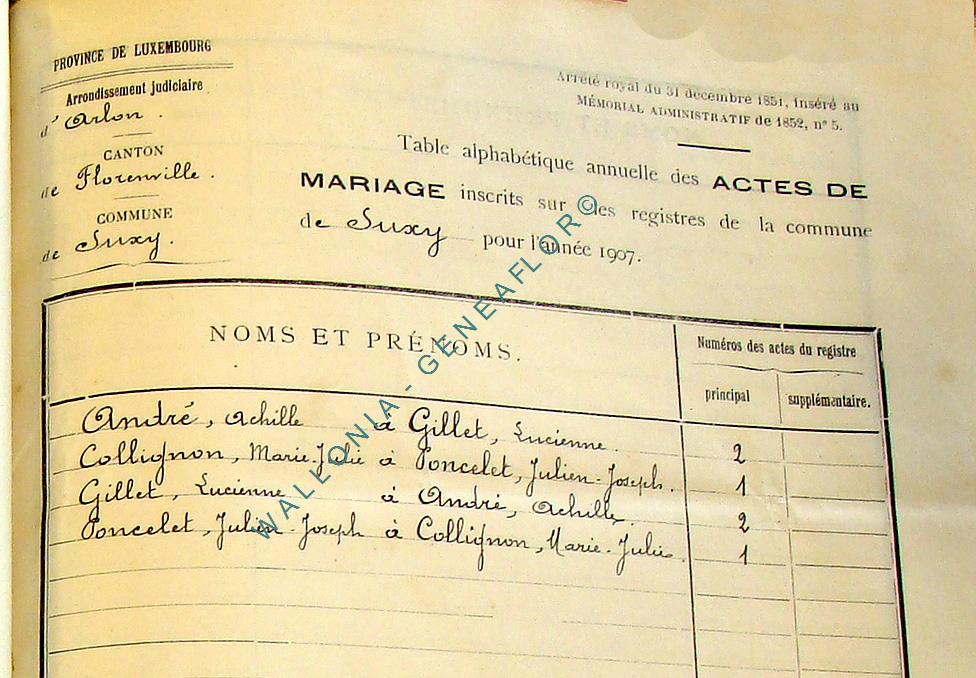 PROVINCE DE LUXEMBOURG
Arrondissement judiciaire
d'Arlon.
CANTON
de Florenville.
COMMUNE
de Suxy.
Arrêté royal du 31 décembre 1851, inséré au
MÉMORIAL ADMINISTRATIF de 1852, n° 5.
Table alphabétique annuelle des ACTES DE
MARIAGE inscrits sur les registres de la commune
de Suxy pour l'année 1907.
NOMS ET PRÉNOMS.
Numéros des actes du registre
principal
supplémentaire.
André, Achille à Gillet, Lucienne. 2
Collignon, Marie-Julie à Poncelet, Julien-Joseph. 1
Gillet, Lucienne à André, Achille. 2
Poncelet, Julien-Joseph à Collignon, Marie-Julie. 1
WALLONIA - GENEAFLOR©